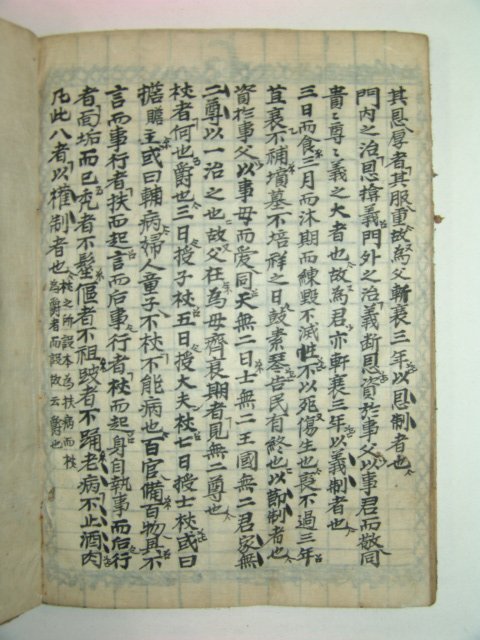 其恩厚者其服重故為父斬衰三年以恩制者也
門內之治恩揜義門外之治義斷恩資於事父以事君而敬同
貴貴尊尊義之大者也故為君亦斬衰三年以義制者也
三日而食三月而沐期而練毀不滅性不以死傷生也喪不過三年
苴衰不補墳墓不培祥之日鼓素琴告民有終也以節制者也
資於事父以事母而愛同天無二日士無二王國無二君家無
二尊以一治之也故父在為母齊衰期者見無二尊也
杖者何也爵也三日授子杖五日授大夫杖七日授士杖或曰
擔主或曰輔病婦人童子不杖不能病也百官備百物具不
言而事行者扶而起言而后事行者杖而起身自執事而后行
者面垢而已禿者不髽傴者不袒跛者不踊老病不止酒肉
凡此八者以權制者也杖之所設本為扶病而杖為爵者而設故云爵也